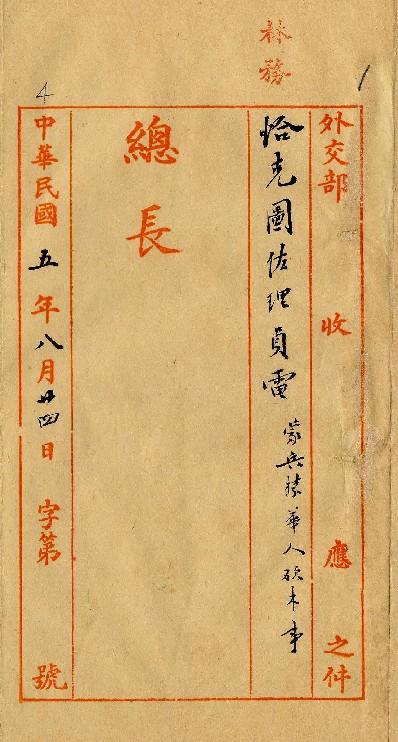 林務
1
外交部 收 應 之件
恰克圖佐理員電 蒙兵 華人砍木事
總長
4
中華民國五年八月廿四日 字第 號